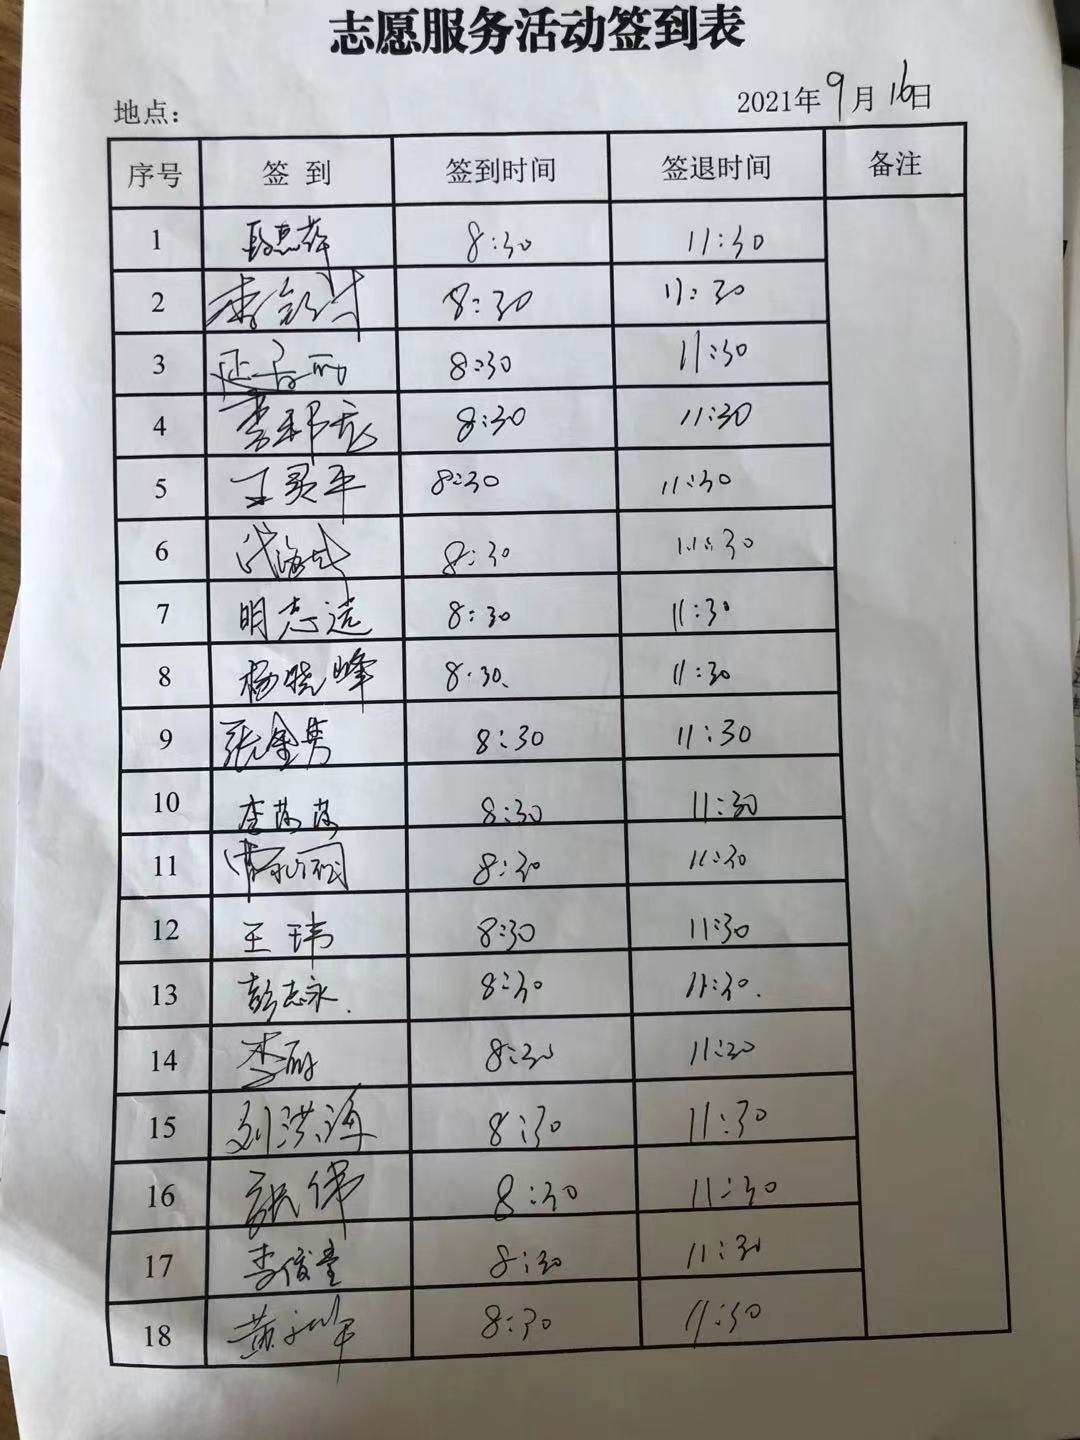 志愿服务活动签到表
地点： 2021年9月16日
序号 签到 签到时间 签退时间 备注
1 8:30 11:30
2 8:30 11:30
3 8:30 11:30
4 8:30 11:30
5 王灵平 8:30 11:30
6 8:30 11:30
7 明志远 8:30 11:30
8 杨晓峰 8:30 11:30
9 张金勇 8:30 11:30
10 李莎莎 8:30 11:30
11 8:30 11:30
12 王玮 8:30 11:30
13 彭志永 8:30 11:30
14 李 8:30 11:30
15 刘洪海 8:30 11:30
16 张伟 8:30 11:30
17 李俊 8:30 11:30
18 黄 8:30 11:30